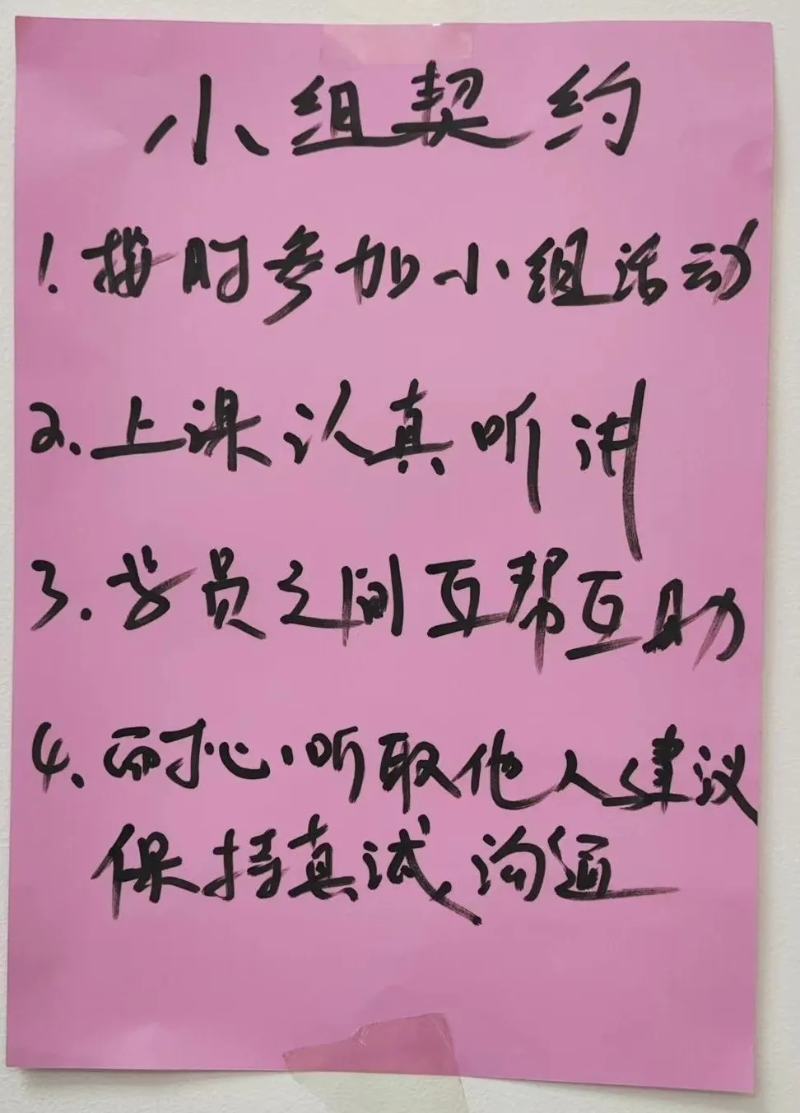 小组契约
1.按时参加小组活动
2.上课认真听讲
3.学员之间互帮互助
4.耐心听取他人建议
保持真诚沟通